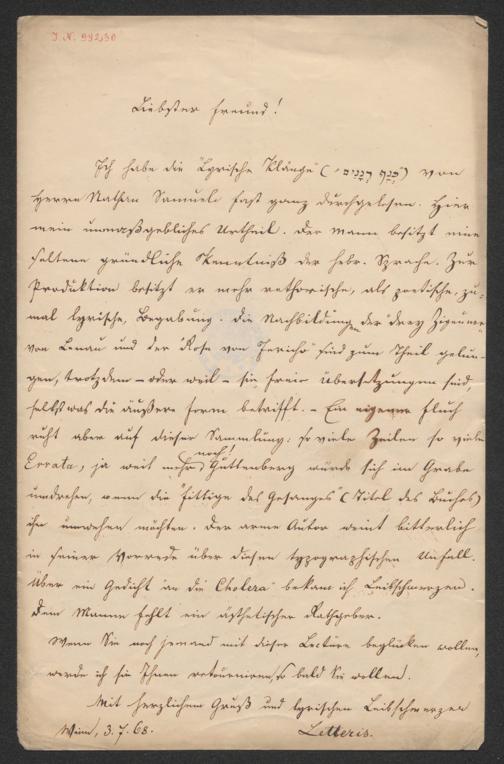 I. N. 992,30
Liebster Freund!
Ich habe die "Lyrische Klänge" ("כנף רננים") von
Herrn Nathan Samueli fast ganz durchgelesen. Hier
mein unmaßgebliches Urtheil. Der Mann besitzt eine
seltene gründliche Kenntniß der hebr. Sprache. Zur
Produktion besitzt er mehr rethorische, als poetische, zu-
mal lyrische, Begabung. Die Nachbildungen der "drey Zigeuner"
von Lenau und der "Rose von Jericho" sind zum Theil gelun-
gen, trotzdem – oder weil – sie freie Übersetzungen sind,
selbst was die äußere Form betrifft. – Ein eigener Fluch
ruht aber auf dieser Sammlung: so viele Zeilen so viele
Errata, ja weit mehr noch! Guttenberg würde sich im Grabe
umdrehen, wenn die "Fittige des Gesanges" (Titel des Buches)
ihn umwehen möchten. Der arme Autor weint bitterlich
in seiner Vorrede über diesen typographischen Unfall.
Über ein Gedicht "an die Cholera" bekam ich Leibschmerzen.
Dem Manne fehlt ein ästhetischer Rathgeber.
Wenn Sie noch jemand mit dieser Lectüre beglücken wollen,
werde ich sie Ihnen retourniren, so bald Sie wollen.
Mit herzlichem Gruß und lyrischen Leibschmerzen
Wien, 3. 7. 68. Letteris.